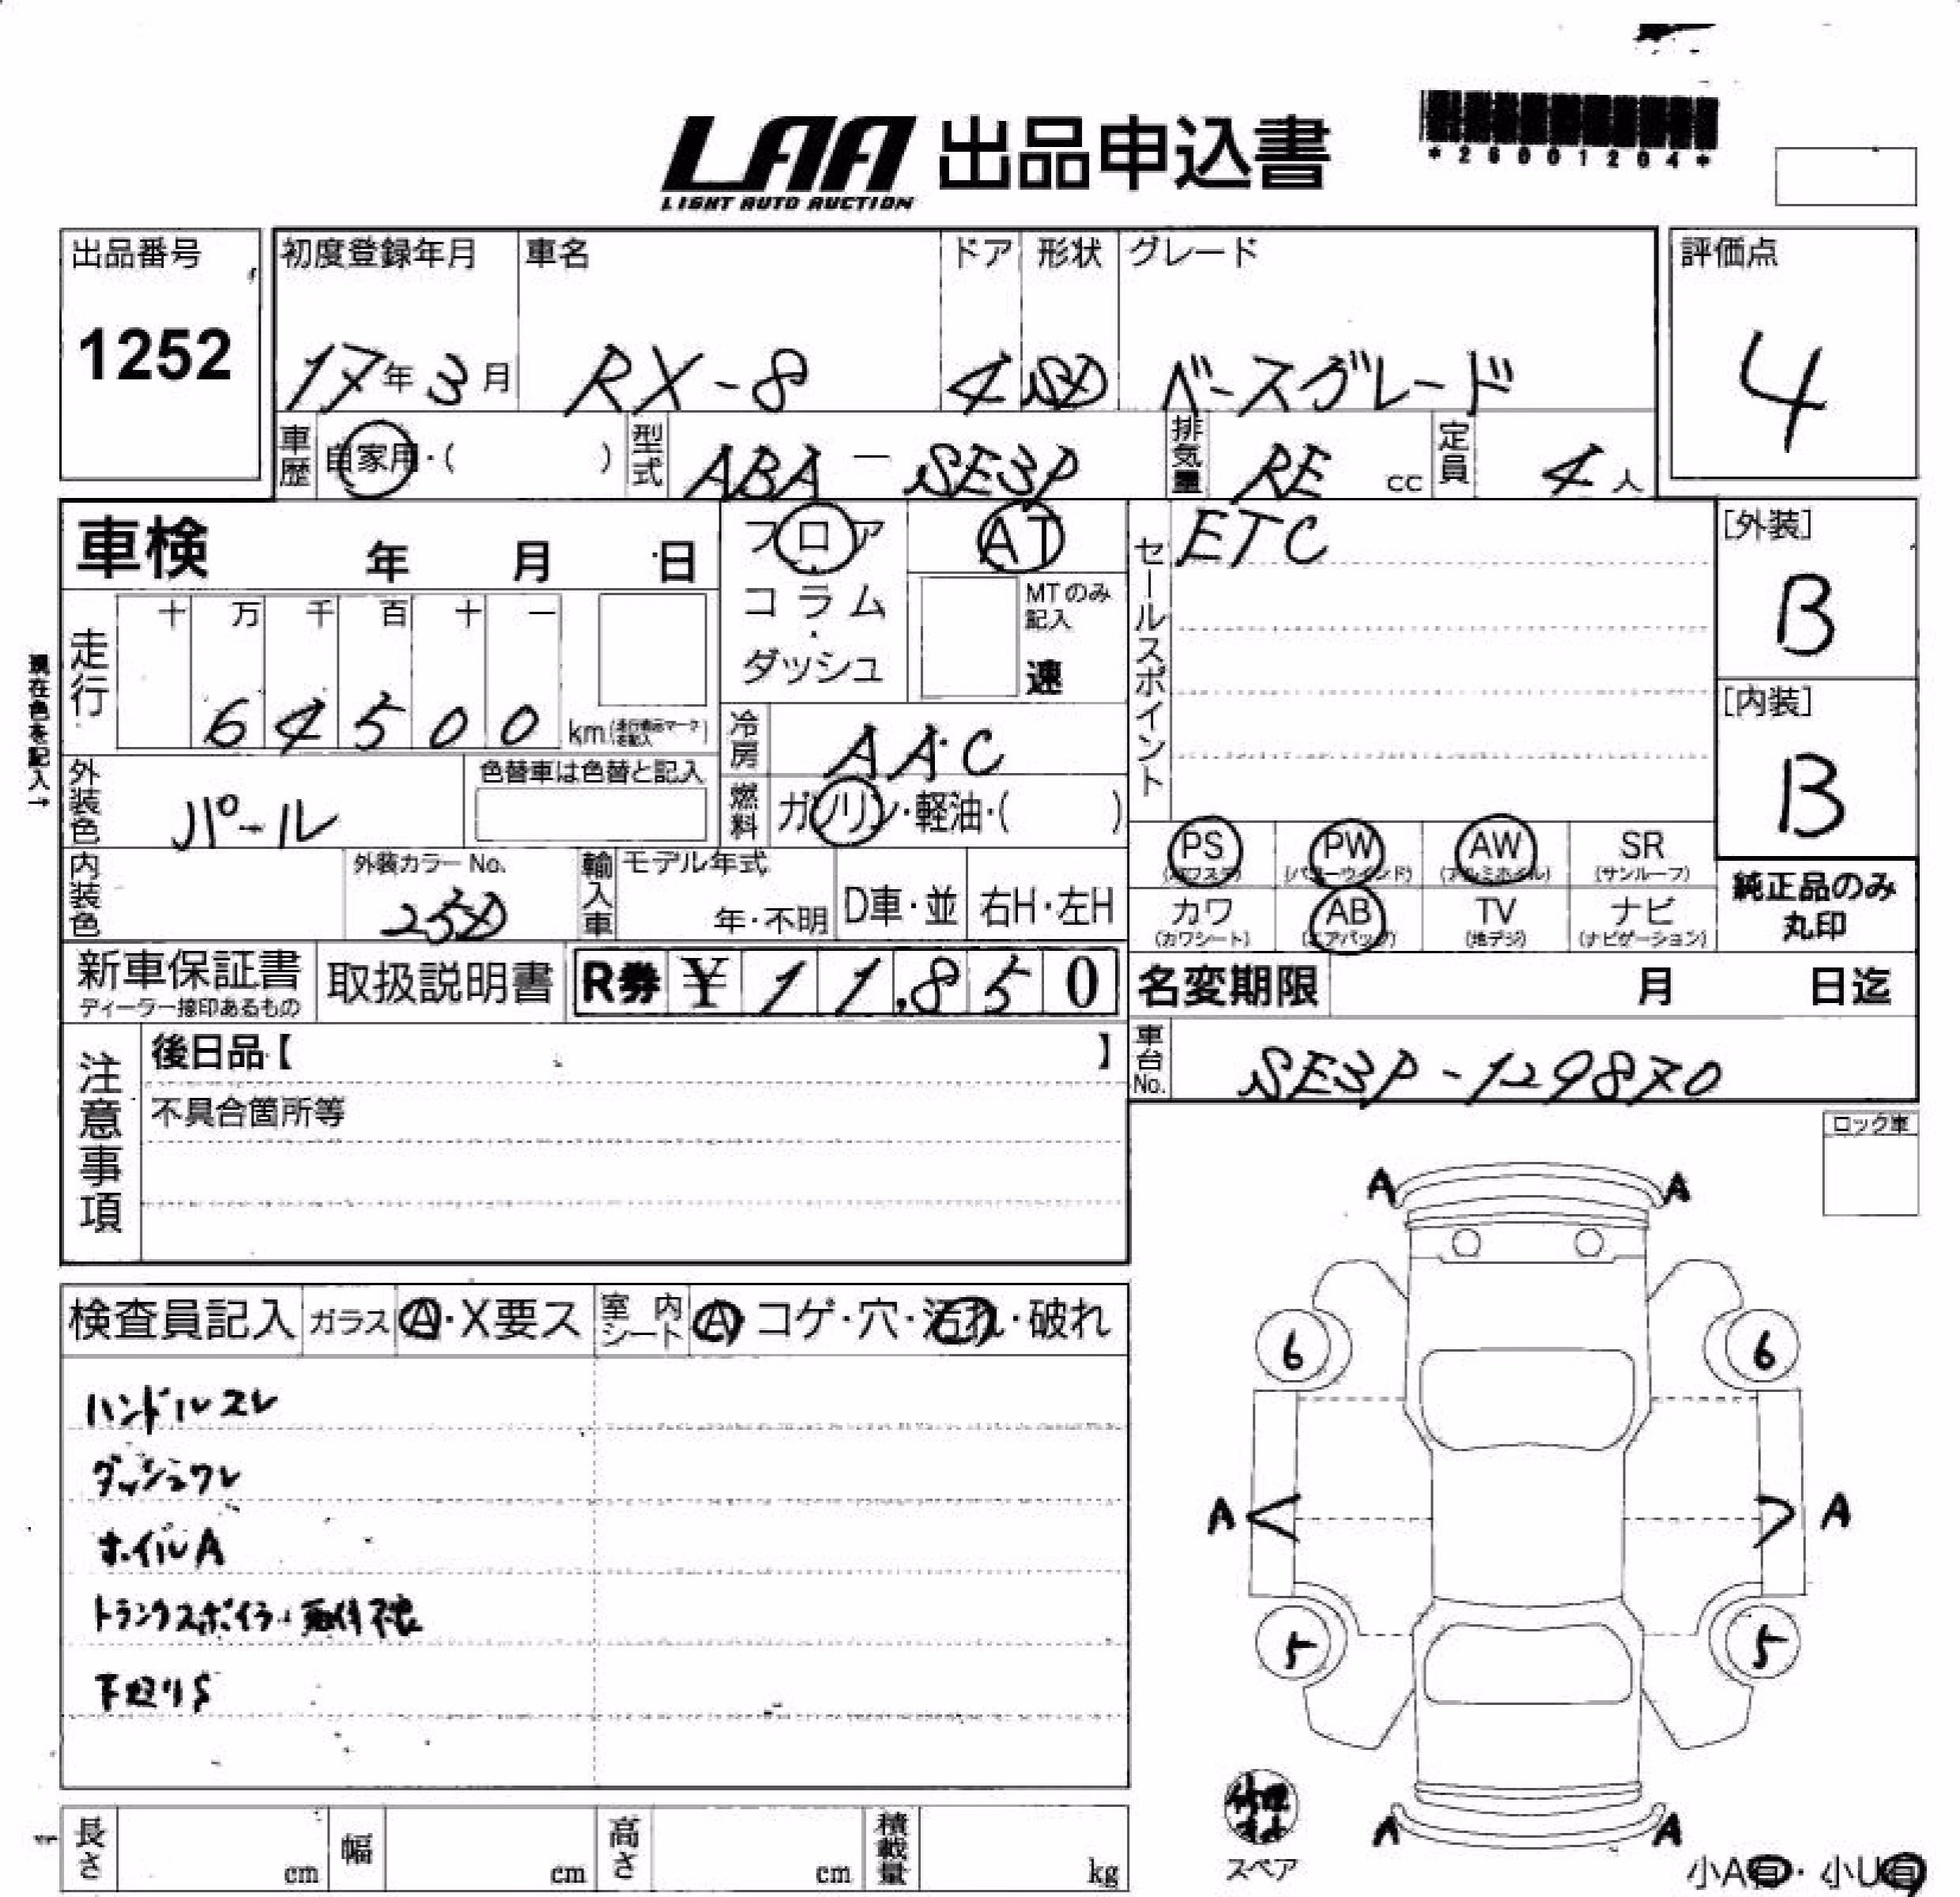 LAA 出品申込書
LIGHT AUTO AUCTION
*26001204*
出品番号
1252
初度登録年月 車名 ドア 形状 グレード
17年3月 RX-8 4 SD ベースグレード
評価点
4
車歴 自家用・( ) 型式 ABA-SE3P 排気量 RE cc 定員 4人
車検 年 月 日
フロア
コラム
ダッシュ
AT
MTのみ記入
速
セールスポイント
ETC
[外装]
B
[内装]
B
現在色を記入→
走行 十 万 千 百 十 一
64500 km
冷房 AAC
外装色 パール
色替車は色替と記入
燃料 ガソリン・軽油・( )
PS PW AW SR
(パワステ) (パワーウインド) (アルミホイル) (サンルーフ)
カワ AB TV ナビ
(カワシート) (エアバッグ) (地デジ) (ナビゲーション)
純正品のみ
丸印
内装色
外装カラーNo.
25D
輸入車 モデル年式
年・不明 D車・並 右H・左H
新車保証書
取扱説明書 R券 ¥11,850
名変期限 月 日迄
注意事項
後日品【 】
不具合箇所等
車台No. SE3P-129870
ロック車
検査員記入 ガラス A・X要ス 室内シート A コゲ・穴・汚れ・破れ
ハンドルスレ
ダッシュワレ
ホイルA
トランクスポイラー取付不良
下廻りS
A A
6 6
A A
5 5
A A
スペア
小A有・小U有
長さ cm 幅 cm 高さ cm 積載量 kg